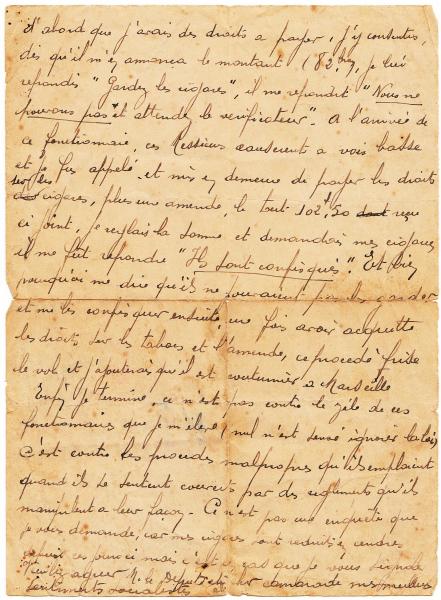 d'abord que j'avais des droits a payer, j'y consentis,
dès qu'il m'en annonca le montant (82 frs), je lui
repondis "Gardez les cigares", il me repondit "Nous ne
pouvons pas et attendez le verificateur". A l'arrivée de
ce fonctionnaire, ces Messieurs causerent a voix basse
et je fus appelé et mis en demeure de payer les droits
sur les cigares, plus une amende, le tout 102f50 reçu
ci joint, je reglais la somme et demandais mes cigares
il me fut repondu "Ils sont confisqués". Et bien
pourquoi me dire qu'ils ne pouvaient pas les garder
et me les confisquer ensuite, une fois avoir acquitté
les droits sur les tabacs et l'amende, ce procedé frise
le vol et j'ajouterai qu'il est coutumier a Marseille
Enfin je termine, ce n'est pas contre le zèle de ces
fonctionnaires que je m'élève, nul n'est sensé ignorer la loi
c'est contre les procedes malpropres qu'ils emploient
quand ils se sentent couverts par des reglements qu'ils
manipulent a leur façon. Ce n'est pas une enquête que
je vous demande, car mes cigares sont reduits en cendres
depuis ces jours ci mais c'est un cas que je vous signale
Veuillez agreer M. le Député et cher camarade mes meilleurs
sentiments socialistes